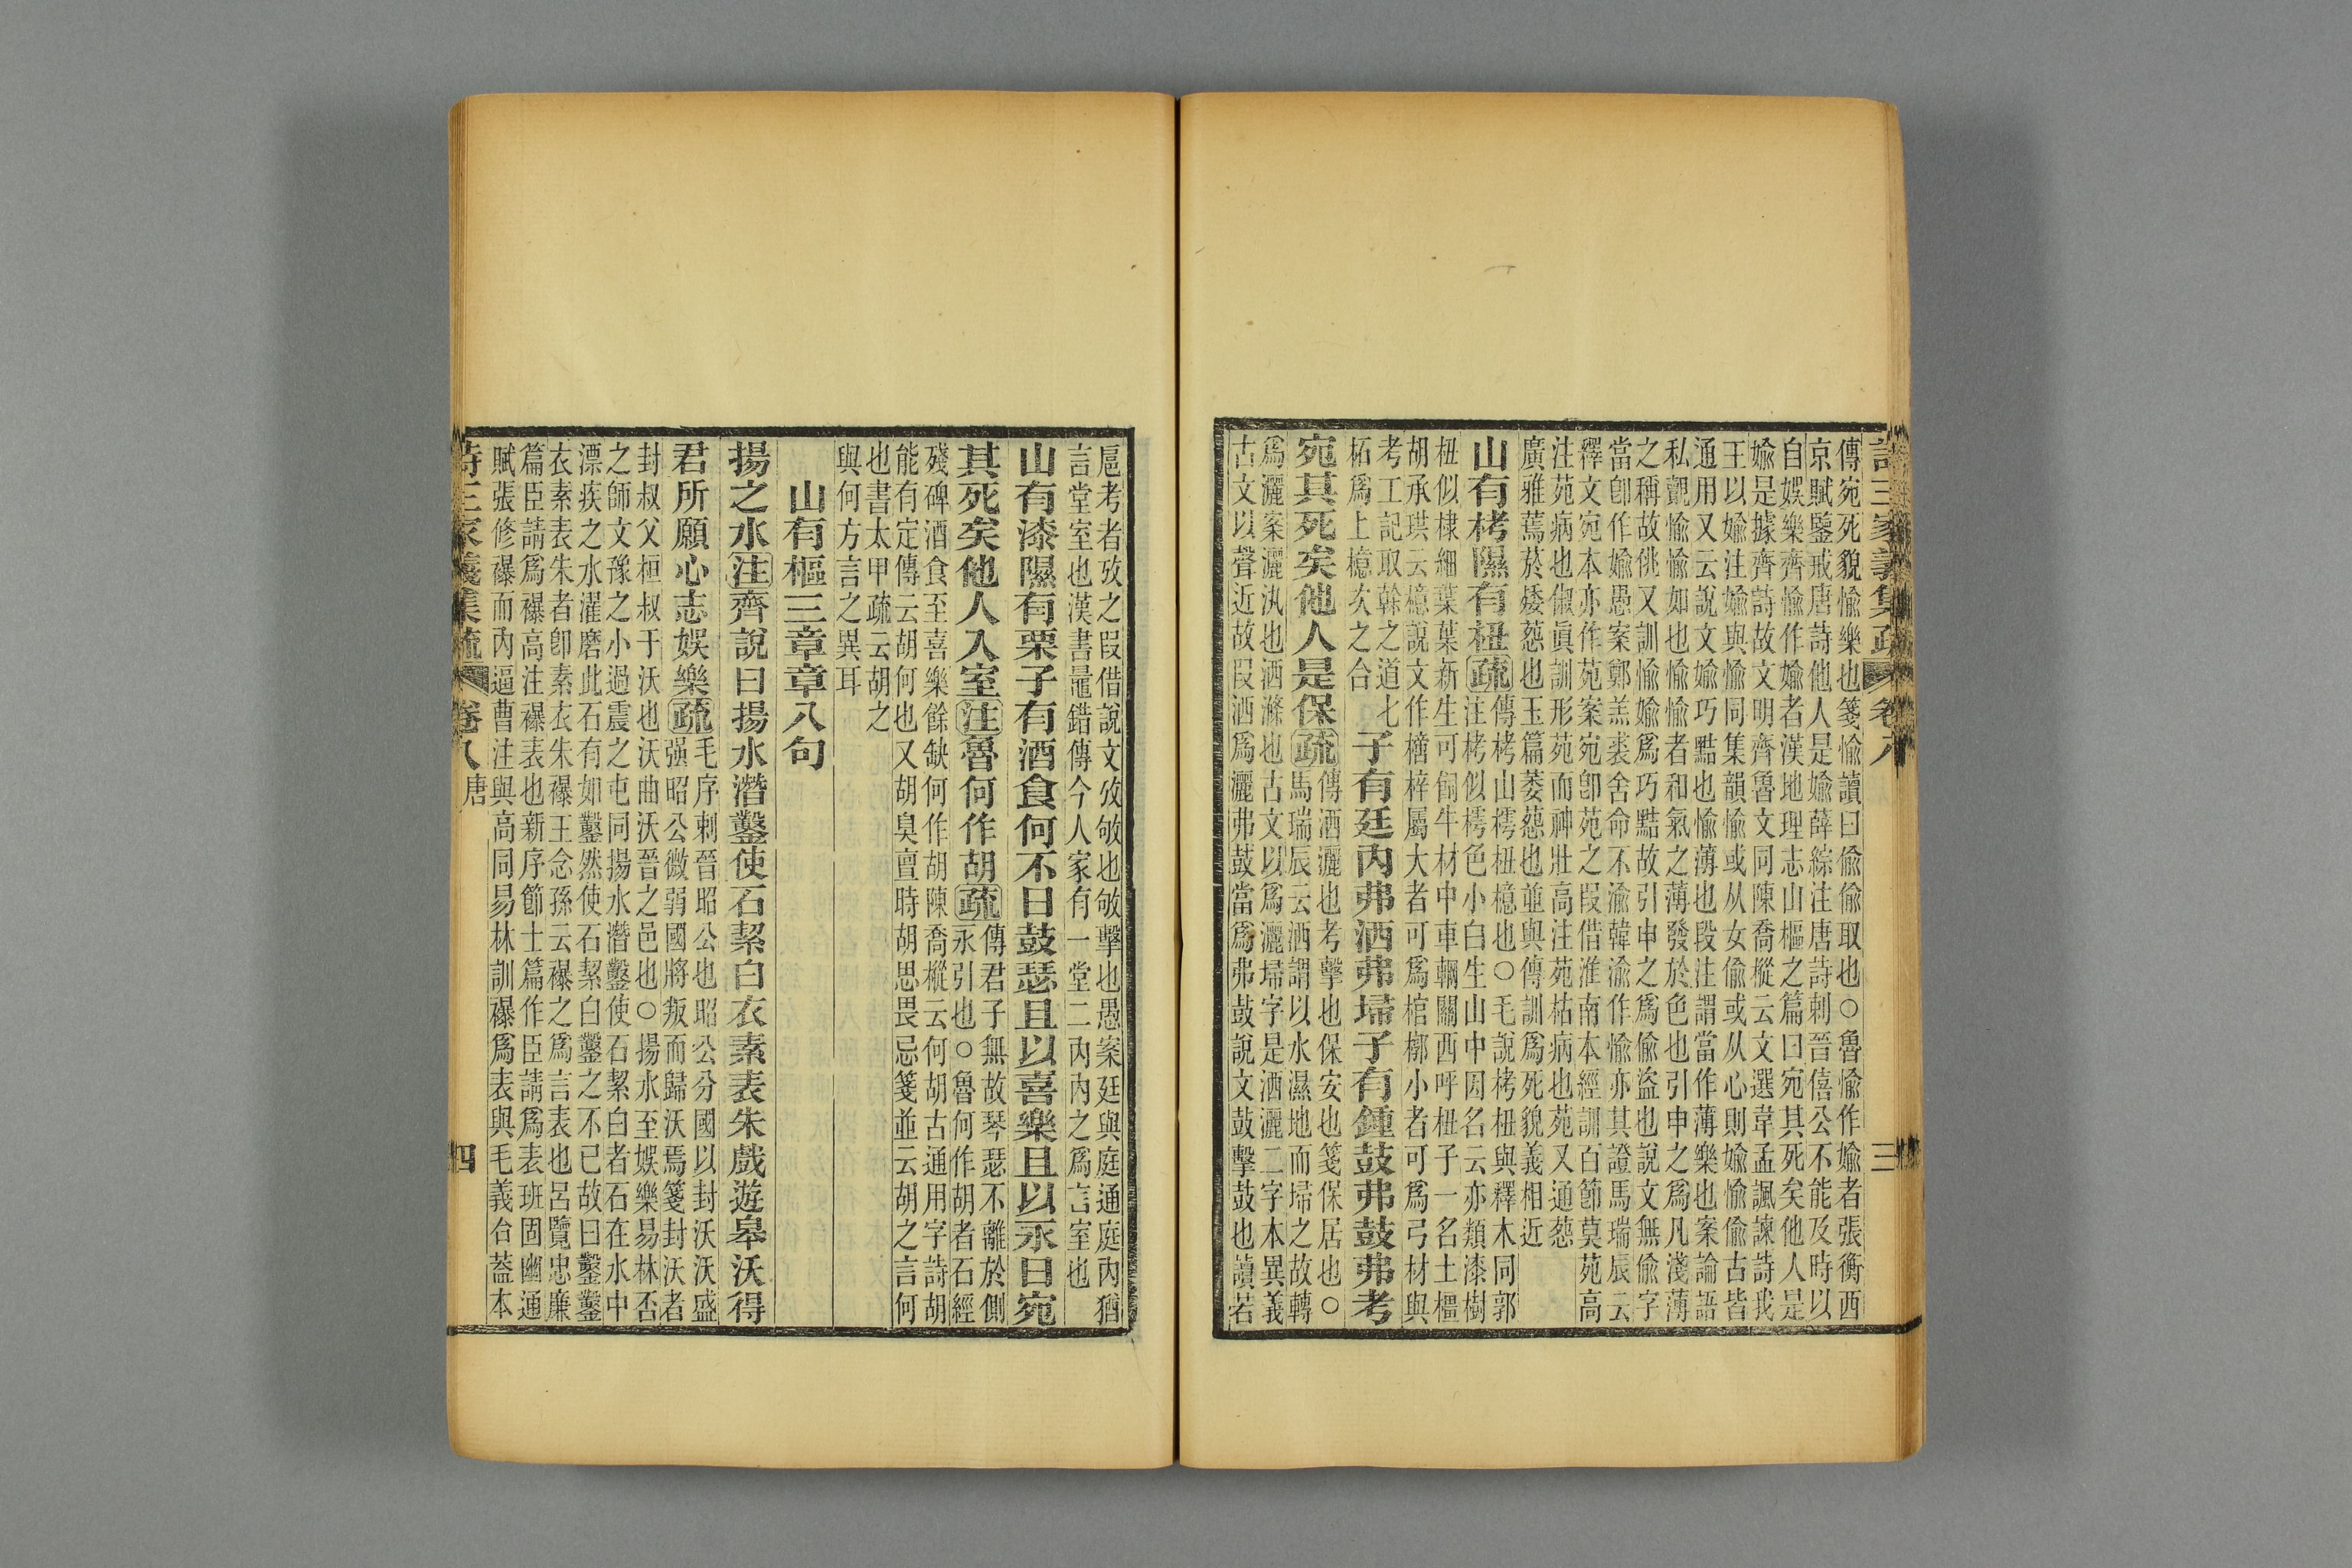 詩三家義集疏 卷八 三
傳宛死貌愉樂也箋愉讀曰偷偷取也○魯愉作婾者張衡西
京賦鑒戒唐詩他人是婾薛綜注唐詩刺晉僖公不能及時以
自娛樂齊愉作婾者漢地理志山樞之篇曰宛其死矣他人是
婾是據齊詩故文明齊魯文同陳喬樅云文選韋孟諷諫詩我
王以婾注婾與愉同集韻愉或从女偷或从心則婾愉偷古皆
通用又云說文婾巧黠也愉薄也段注謂當作薄樂也案論語
私覿愉愉如也愉愉者和氣之薄發於色也引申之爲凡淺薄
之稱故佻又訓愉婾爲巧黠故引申之爲偷盜也說文無偷字
當卽作婾愚案鄭羔裘舍命不渝韓渝作愉亦其證馬瑞辰云
釋文宛本亦作苑案宛卽苑之叚借淮南本經訓百節莫苑高
注苑病也俶眞訓形苑而神壯高注苑枯病也苑又通葾
廣雅蔫菸矮葾也玉篇萎葾也並與傳訓爲死貌義相近
山有栲隰有杻疏傳栲山樗杻檍也○毛說栲杻與釋木同郭
注栲似樗色小白生山中因名云亦類漆樹
杻似棣細葉葉新生可飼牛材中車輞關西呼杻子一名土橿
胡承珙云檍說文作㯆梓屬大者可爲棺槨小者可爲弓材與
考工記取榦之道七
柘爲上檍次之合
子有廷內弗洒弗埽子有鍾鼓弗鼓弗考
宛其死矣他人是保疏傳洒灑也考擊也保安也箋保居也○
馬瑞辰云洒謂以水濕地而埽之故轉
爲灑案灑汛也洒滌也古文以爲灑埽字是洒灑二字本異義
古文以聲近故叚洒爲灑弗鼓當爲弗鼓說文鼓擊鼓也讀若
扈考者攷之叚借說文攷敂也敂擊也愚案廷與庭通庭內猶
言堂室也漢書鼂錯傳今人家有一堂二內內之爲言室也
山有漆隰有栗子有酒食何不日鼓瑟且以喜樂且以永日宛
其死矣他人入室注魯何作胡疏傳君子無故琴瑟不離於側
永引也○魯何作胡者石經
殘碑酒食至喜樂餘缺何作胡陳喬樅云何胡古通用字詩胡
能有定傳云胡何也又胡臭亶時胡思畏忌箋並云胡之言何
也書太甲疏云胡之
與何方言之異耳
山有樞三章章八句
揚之水注齊說曰揚水潛鑿使石絜白衣素表朱戲遊皋沃得
君所願心志娛樂疏毛序刺晉昭公也昭公分國以封沃沃盛
强昭公微弱國將叛而歸沃焉箋封沃者
封叔父桓叔于沃也沃曲沃晉之邑也○揚水至娛樂易林否
之師文豫之小過震之屯同揚水潛鑿使石絜白者石在水中
漂疾之水濯磨此石有如鑿然使石絜白鑿之不已故曰鑿鑿
衣素表朱者卽素衣朱襮王念孫云襮之爲言表也呂覽忠廉
篇臣請爲襮高注襮表也新序節士篇作臣請爲表班固幽通
賦張修襮而內逼曹注與高同易林訓襮爲表與毛義合蓋本
詩三家義集疏 卷八 唐 四